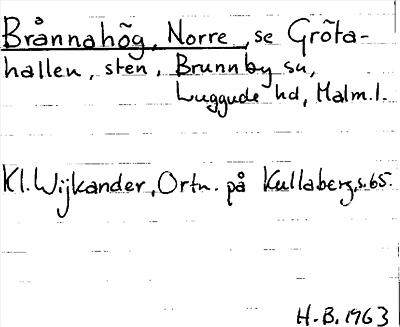 Brånnahõg, Norre, se Grõta-
hallen, sten, Brunnby sn,
Luggude hd, Malm.l.
Kl. Wijkander, Ortn. på Kullaberg, s. 65.
H.B. 1963